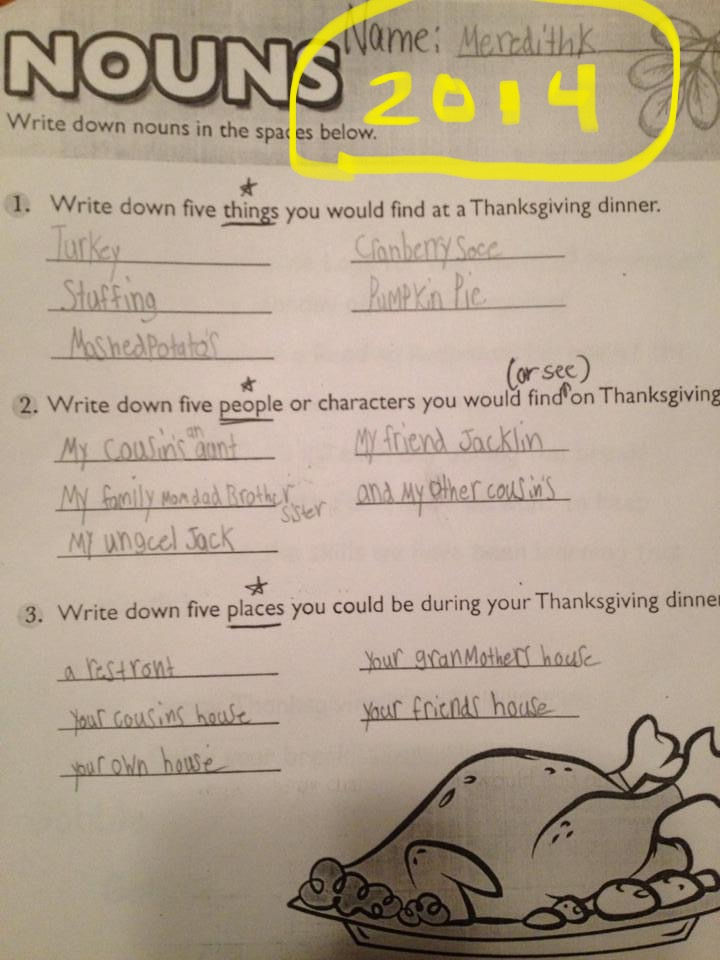 NOUNS Name: Meredith K
2014
Write down nouns in the spaces below.
1. Write down five things you would find at a Thanksgiving dinner.
Turkey Cranberry Soce
Stuffing Pumpkin Pie
Mashed Potato's
(or see)
2. Write down five people or characters you would find on Thanksgiving
My Cousin's an aunt My friend Jacklin
My family Mom dad Brother sister and My other cousin's
My ungcel Jack
3. Write down five places you could be during your Thanksgiving dinner
a restront your granMothers house
your cousins house your friends house
your own house